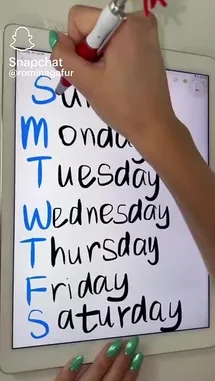 Snapchat
@rominagafur
Monday
Tuesday
Wednesday
Thursday
Friday
Saturday